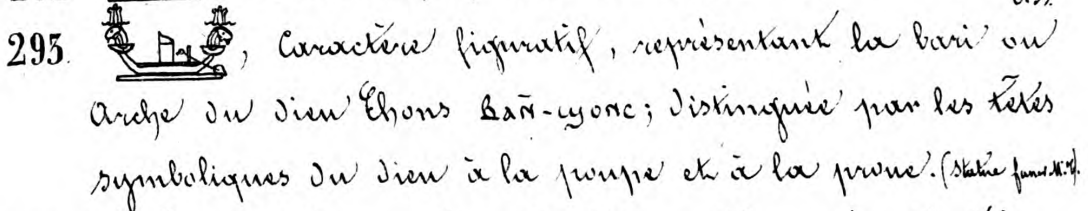 295. , Caractère figuratif, représentant la bari ou
Arche du dieu Chons ; distinguée par les têtes
symboliques du dieu à la poupe et à la proue. (Statue funér. M. T.)